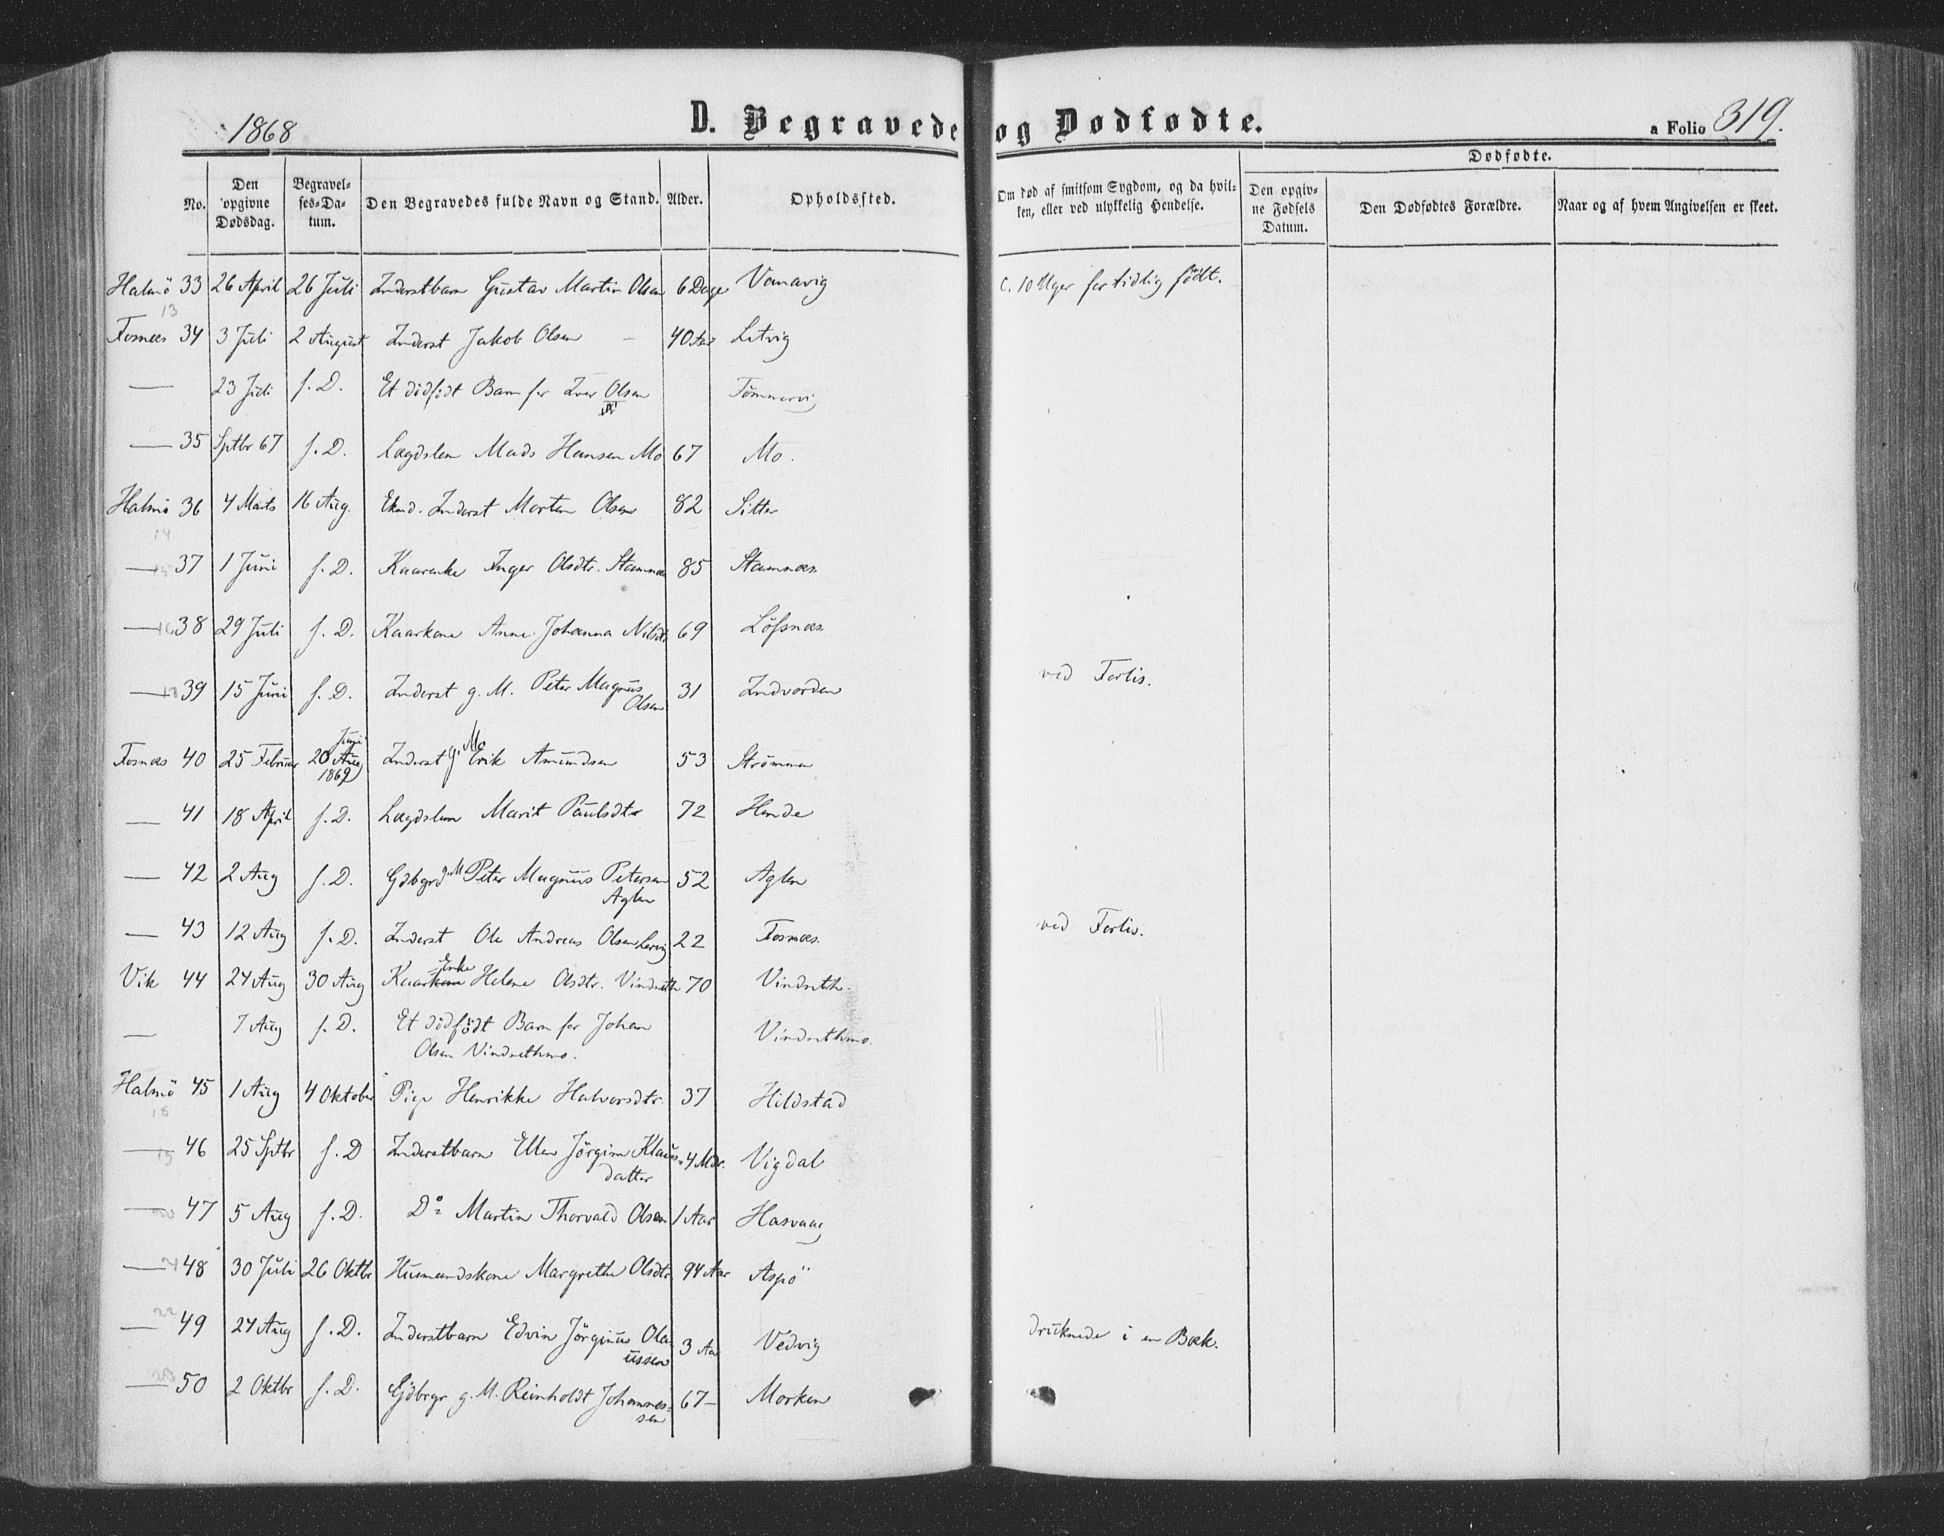 1868 D. Begravede og Dødfødte. a Folio 319.
No. Den opgivne Dødsdag. Begravelses-Datum. Den Begravedes fulde Navn og Stand. Alder. Opholdssted. Om død af smitsom Sygdom, og da hvilken, eller ved ulykkelig Hendelse. Den opgivne Fødsels Datum. Dødfødte. Den Dødfødtes Forældre. Naar og af hvem Angivelsen er skeet.
Halmö 33 26 April 26 Juli Inderstbarn Gustav Martin Olsen 6 Dage Vanavig c. 10 Uger for tidlig födt.
13
Fosnæs 34 3 Juli 2 August Inderst Jakob Olsen – 40 Aar Letvig
— 23 Juli s. D. Et dödfödt Barn for Iver Olsen Tömmervig
— 35 Sptbr 67 s. D. Lægdslem Mads Hansen Mo 67 Mo.
Halmö 36 4 Marts 16 Aug. Inderst Morten Olsen 82 Sitter
14
— 37 1 Juni s. D. Kaarenke Inger Olsdtr. Stamnæs 85 Stamnæs
— 16 38 29 Juli s. D. Kaarkone Anne Johanna Nilsdtr 69 Löfsnæs
— 39 15 Juni s. D. Inderst g. M. Peter Magnus Olsen 31 Indvorden ved Forlis.
Fosnæs 40 25 Februar 20 Aug Juni 1869 Inderst g. M. Erik Amundsen 53 Strømmen
— 41 18 April s. D. Lægdslem Marit Paulsdtr 72 Hende
— 42 2 Aug s. D. Gdbgrd M Peter Magnus Petersen Aglen 52 Aglen
— 43 12 Aug s. D. Inderst Ole Andreas Olsen 22 Fosnæs. ved Forlis.
Vik 44 24 Aug 30 Aug Kaarkone Enke Helene Olsdtr. Vindreth 70 Vindreth.
— 7 Aug s. D. Et dödfödt Barn for Johan
Olsen Vindrethmo. Vindrethmo.
Halmö 45 1 Aug 4 Oktober Pige Henrikke Halvorsdtr. 37 Hildstad
18
— 46 25 Sptbr s. D Inderstbarn Ellen Jørgine Klaus-
datter 4 Mdr. Vigdal
— 47 5 Aug s. D. Do Martin Thorvald Olsen 1 Aar Hasvaag
— 21 48 30 Juli 26 Oktbr Husmandskone Margrethe Olsdtr. 94 Aar Aspö
— 22 49 24 Aug s. D. Inderstbarn Edvin Jørginus Ola-
ussen 3 Aar Vedvig druknede i en Bæk.
— 23 50 2 Oktbr s. D. Gdbrgr g. M. Reinholdt Johannes-
sen 67 – Morken